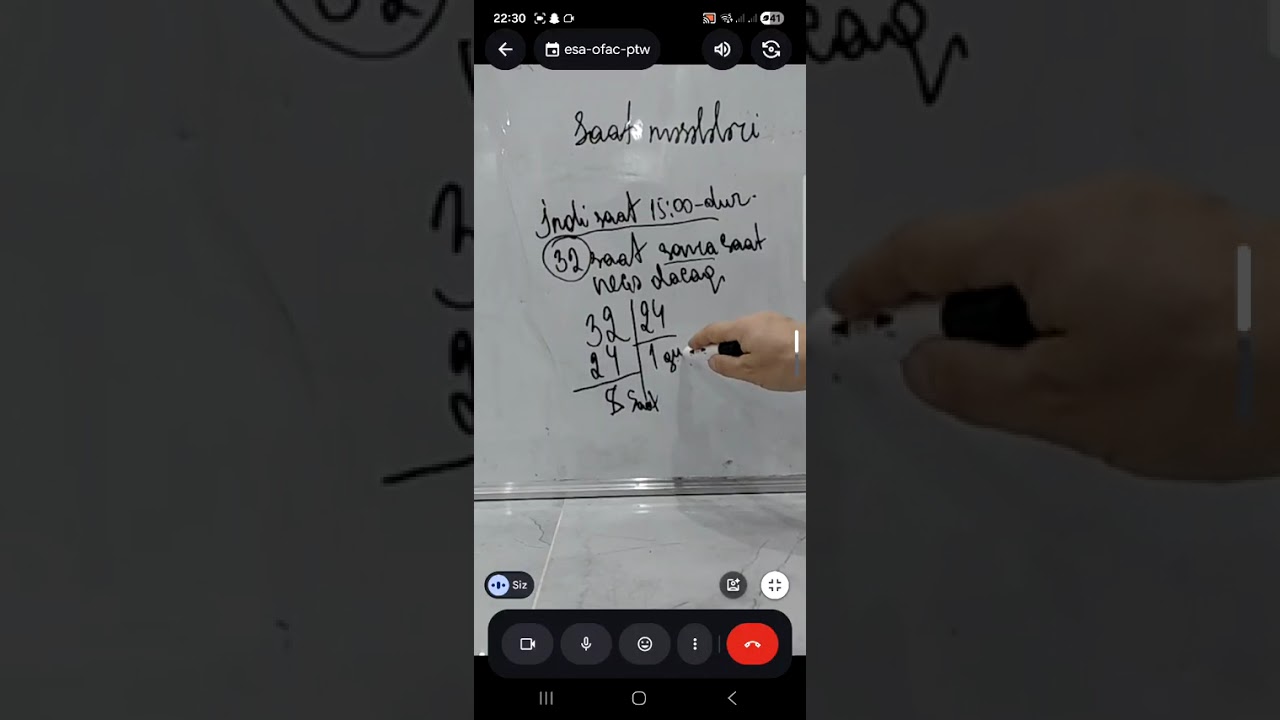 22:30
41
esa-ofac-ptw
Saat məsələləri
İndi saat 15:00-dur.
32 saat sonra saat
neçə olacaq
32 24
24 1 gü
8 saat
Siz